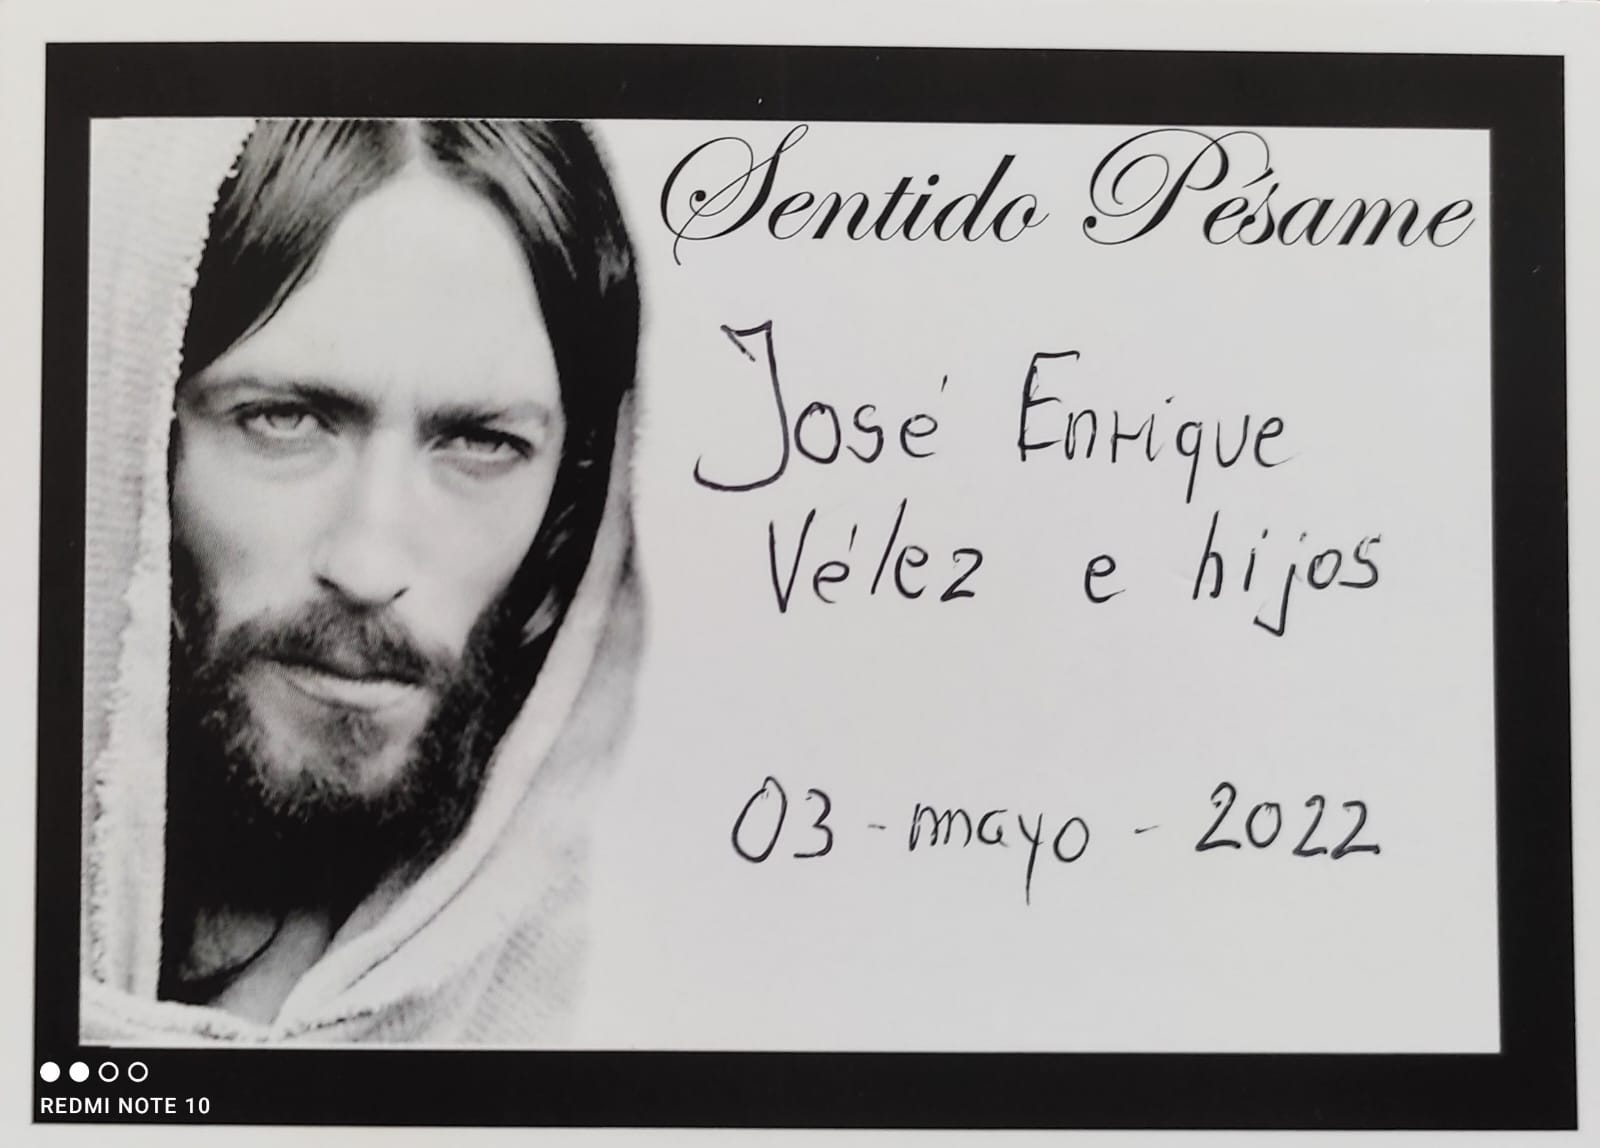 Sentido Pésame
José Enrique
Vélez e hijos
03 - mayo - 2022
REDMI NOTE 10